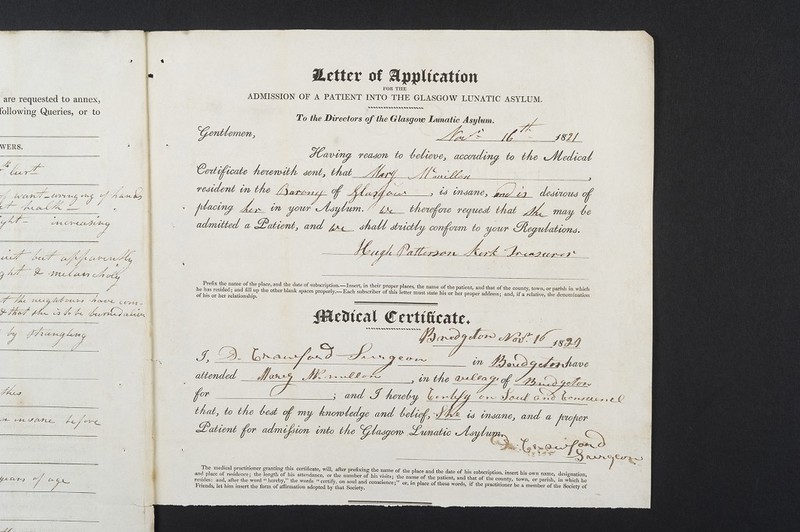 are requested to annex,
following Queries, or to
WERS.
of want—wringing of hands
health
increasing
but apparently
& melancholy
the neighbours have con-
& that she is to be burned alive
by strangling
this
insane before
years of age
Letter of Application
FOR THE
ADMISSION OF A PATIENT INTO THE GLASGOW LUNATIC ASYLUM.
To the Directors of the Glasgow Lunatic Asylum.
Novr. 16th 1821
Gentlemen,
Having reason to believe, according to the Medical
Certificate herewith sent, that Mary McMillan,
resident in the Barony of Glasgow, is insane, and is desirous of
placing her in your Asylum. We therefore request that She may be
admitted a Patient, and we shall strictly conform to your Regulations.
Hugh Patterson Kirk Treasurer
Prefix the name of the place, and the date of subscription.—Insert, in their proper places, the name of the patient, and that of the county, town, or parish in which
he has resided; and fill up the other blank spaces properly.—Each subscriber of this letter must state his or her proper address; and, if a relative, the denomination
of his or her relationship.
Medical Certificate.
Bridgeton Novr. 16 1821
I, D. Crawford Surgeon in Bridgeton have
attended Mary McMillan, in the village of Bridgeton
for ; and I hereby Certify on Soul and Conscience
that, to the best of my knowledge and belief, She is insane, and a proper
Patient for admission into the Glasgow Lunatic Asylum.
D. Crawford
Surgeon
The medical practitioner granting this certificate, will, after prefixing the name of the place and the date of his subscription, insert his own name, designation,
and place of residence; the length of his attendance, or the number of his visits; the name of the patient, and that of the county, town, or parish, in which he
resides: and, after the word "hereby," the words "certify, on soul and conscience;" or, in place of these words, if the practitioner be a member of the Society of
Friends, let him insert the form of affirmation adopted by that Society.